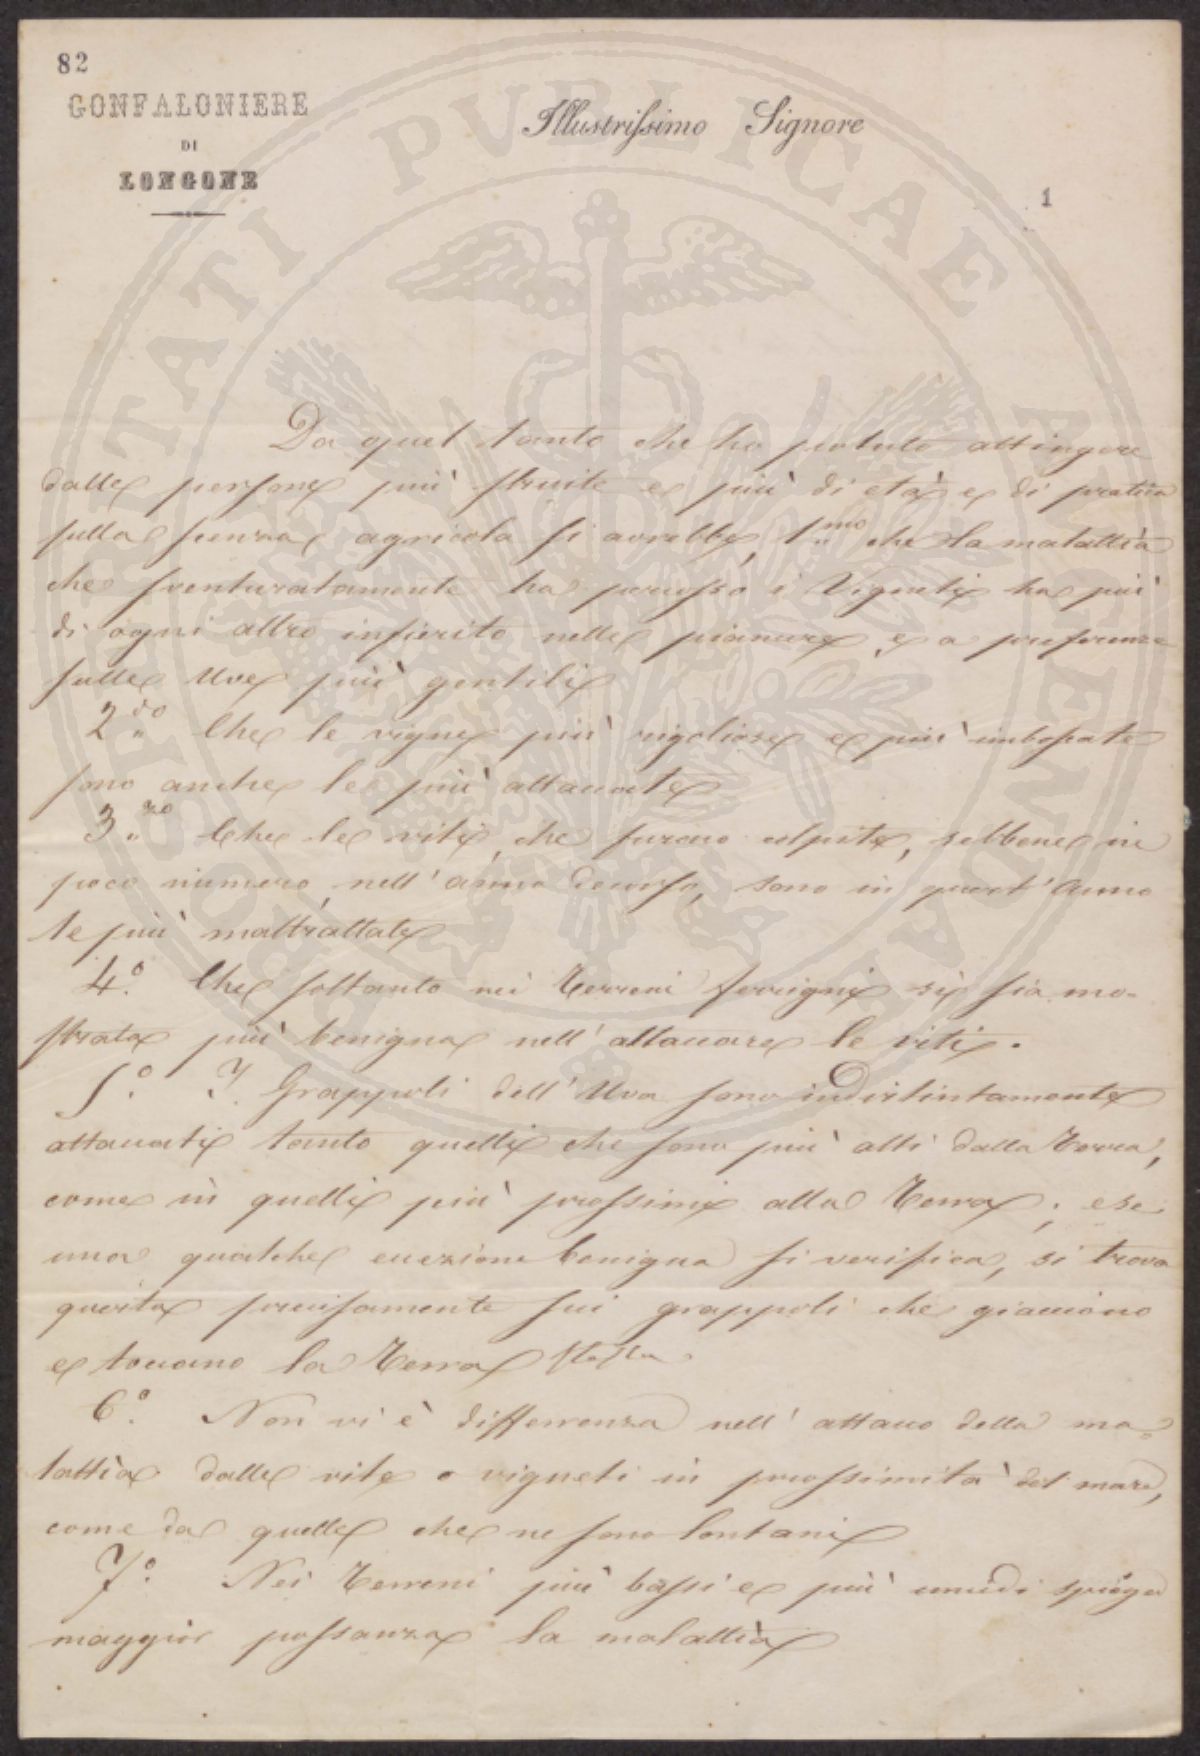 82
GONFALONIERE
DI
LONGONE
Illustrissimo Signore
1
PROSPERITATI PUBLICAE AUGENDAE
Da quel tanto che ho potuto attingere
dalle persone più istruite e più di età e di pratica
sulla scienza agricola si avrebbe, 1.mo che la malattia
che sventuratamente ha percosso i Vigneti ha più
di ogni altro infierito nelle pianure, e a preferenza
sulle Uve più gentili
2.do Che le vigne più rigogliose e più imboscate
sono anche le più attaccate
3.zo Che le viti, che furono colpite, sebbene in
poco numero, nell' anno decorso, sono in quest' Anno
le più maltrattate
4.o Che soltanto nei Terreni ferrigni si sia mo-
strata più benigna nell' attaccare le viti.
5.o I Grappoli dell' Uva sono indistintamente
attaccati tanto quelli che sono più alti dalla Terra,
come in quelli più prossimi alla Terra; e se
una qualche eccezione benigna si verifica, si trova
questa precisamente sui grappoli che giacciono
e toccano la Terra stessa
6.o Non vi è differrenza nell' attacco della ma-
lattia dalle vite o vigneti in prossimità del mare,
come da quelle che ne sono lontani
7.o Nei Terreni più bassi e più umidi spiega
maggior possanza la malattia